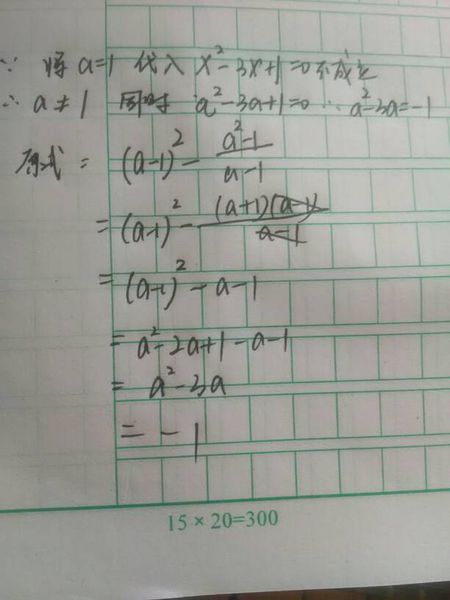 ∵ 将a=1代入x²-3x+1=0不成立
∴ a≠1 同时 a²-3a+1=0 ∴ a²-3a=-1
原式 = (a-1)² - (a²-1)/(a-1)
= (a-1)² - (a+1)(a-1)/(a-1)
= (a-1)² - a - 1
= a²-2a+1-a-1
= a²-3a
= -1
15×20=300